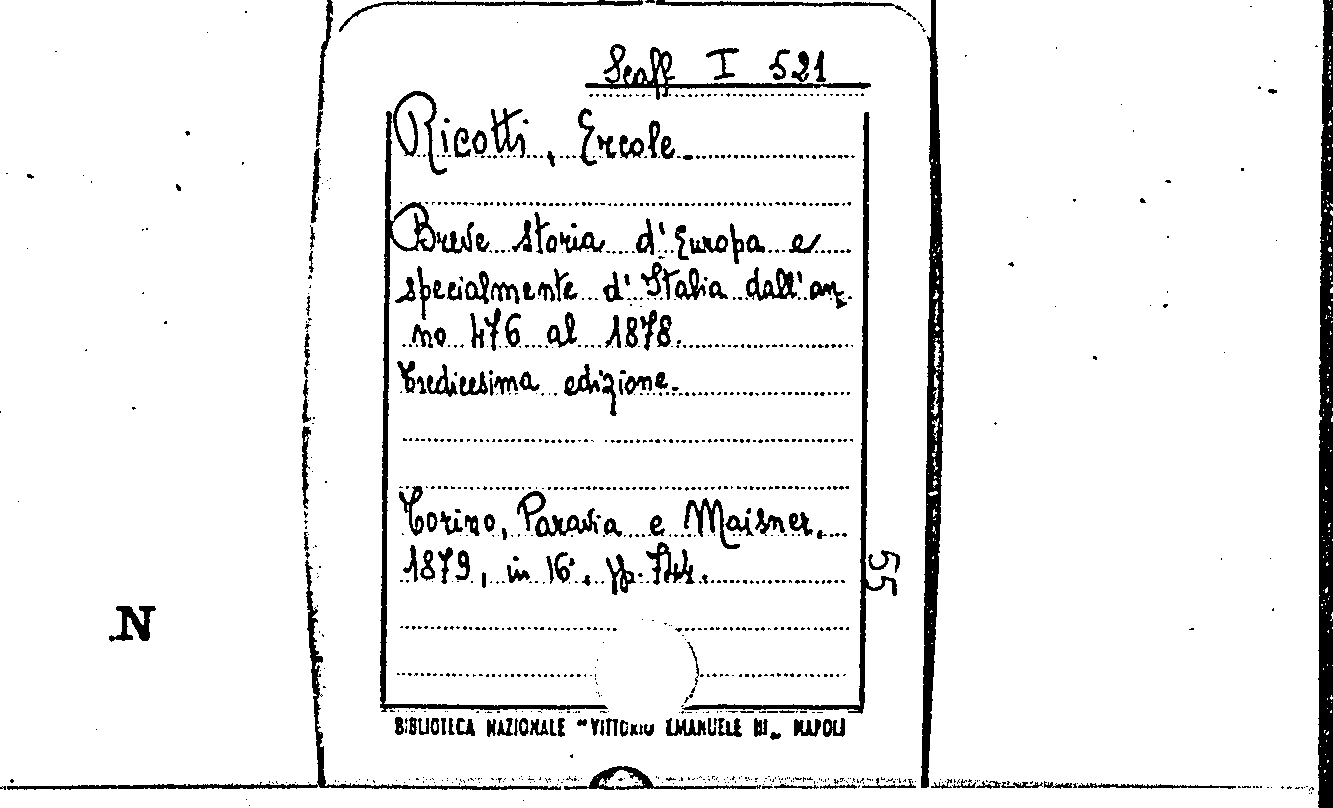 Scaff I 521
Ricotti, Ercole.
Breve storia d'Europa e
specialmente d'Italia dall'an-
no 476 al 1878.
Tredicesima edizione.
Torino, Paravia e Maisner,
1879, in 16°, pp. 744.
55
N
BIBLIOTECA NAZIONALE "VITTORIO EMANUELE III„ NAPOLI